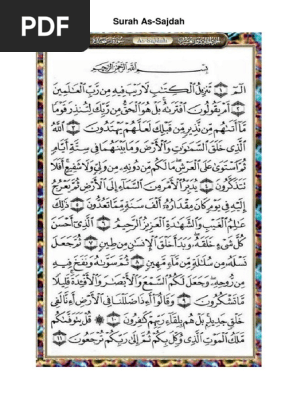 PDF
Surah As-Sajdah
بِسْمِ ٱللَّهِ ٱلرَّحْمَٰنِ ٱلرَّحِيمِ
الٓمٓ ١ تَنزِيلُ ٱلْكِتَٰبِ لَا رَيْبَ فِيهِ مِن رَّبِّ ٱلْعَٰلَمِينَ
٢ أَمْ يَقُولُونَ ٱفْتَرَىٰهُ بَلْ هُوَ ٱلْحَقُّ مِن رَّبِّكَ لِتُنذِرَ قَوْمًا
مَّآ أَتَىٰهُم مِّن نَّذِيرٍ مِّن قَبْلِكَ لَعَلَّهُمْ يَهْتَدُونَ ٣ ٱللَّهُ
ٱلَّذِى خَلَقَ ٱلسَّمَٰوَٰتِ وَٱلْأَرْضَ وَمَا بَيْنَهُمَا فِى سِتَّةِ أَيَّامٍ
ثُمَّ ٱسْتَوَىٰ عَلَى ٱلْعَرْشِ مَا لَكُم مِّن دُونِهِۦ مِن وَلِىٍّ وَلَا شَفِيعٍ أَفَلَا
تَتَذَكَّرُونَ ٤ يُدَبِّرُ ٱلْأَمْرَ مِنَ ٱلسَّمَآءِ إِلَى ٱلْأَرْضِ ثُمَّ يَعْرُجُ
إِلَيْهِ فِى يَوْمٍ كَانَ مِقْدَارُهُۥٓ أَلْفَ سَنَةٍ مِّمَّا تَعُدُّونَ ٥ ذَٰلِكَ
عَٰلِمُ ٱلْغَيْبِ وَٱلشَّهَٰدَةِ ٱلْعَزِيزُ ٱلرَّحِيمُ ٦ ٱلَّذِىٓ أَحْسَنَ
كُلَّ شَىْءٍ خَلَقَهُۥ وَبَدَأَ خَلْقَ ٱلْإِنسَٰنِ مِن طِينٍ ٧ ثُمَّ جَعَلَ
نَسْلَهُۥ مِن سُلَٰلَةٍ مِّن مَّآءٍ مَّهِينٍ ٨ ثُمَّ سَوَّىٰهُ وَنَفَخَ فِيهِ
مِن رُّوحِهِۦ وَجَعَلَ لَكُمُ ٱلسَّمْعَ وَٱلْأَبْصَٰرَ وَٱلْأَفْـِٔدَةَ قَلِيلًا
مَّا تَشْكُرُونَ ٩ وَقَالُوٓا۟ أَءِذَا ضَلَلْنَا فِى ٱلْأَرْضِ أَءِنَّا لَفِى
خَلْقٍ جَدِيدٍۭ بَلْ هُم بِلِقَآءِ رَبِّهِمْ كَٰفِرُونَ ١٠ قُلْ يَتَوَفَّىٰكُم
مَّلَكُ ٱلْمَوْتِ ٱلَّذِى وُكِّلَ بِكُمْ ثُمَّ إِلَىٰ رَبِّكُمْ تُرْجَعُونَ ١١